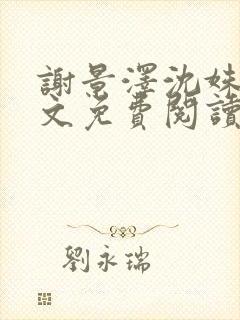 謝景澤沈妹
文免費閱讀
劉永瑞